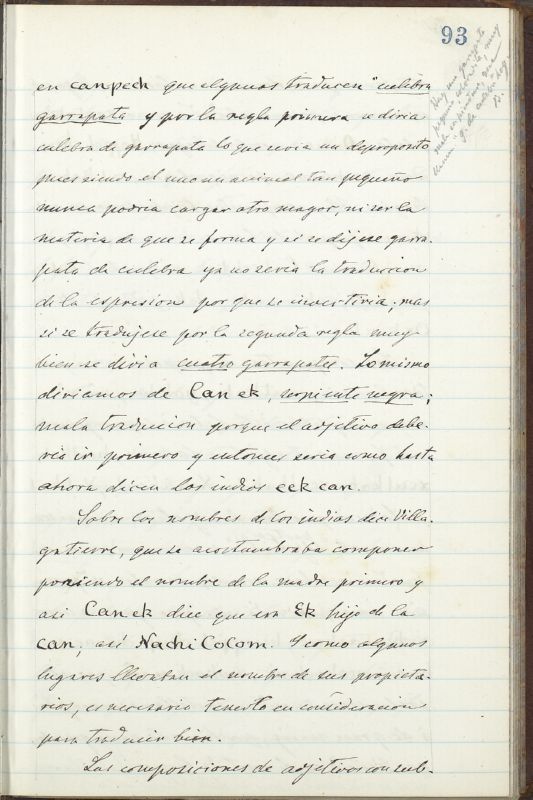 93
en canpech que algunos traducen "culebra
garrapata y por la regla primera se diria
culebra de garrapata lo que seria un despropósito
pues siendo el uno un animal tan pequeño
nunca podria cargar otro mayor, ni ser la
materia de que se forma y si se dijese garra-
pata de culebra ya no seria la traduccion
de la espresion por que se invertiria; mas
si se tradujese por la segunda regla muy
bien se diria cuatro garrapatas. Lo mismo
diriamos de Can ek, serpiente negra;
mala traduccion porque el adjetivo debe-
ria ir primero y entonces seria como hasta
ahora dicen los indios eek can.
Sobre los nombres de los indios dice Villa-
gutierre, que se acostumbraba componer
poniendo el nombre de la madre primero y
asi Canek dice que era Ek hijo de la
Can, así Nachi Cocom. Y como algunos
lugares llevaban el nombre de sus propieta-
rios, es necesario tenerlo en consideracion
para traducir bien.
Las composiciones de adjetivos con sub-
Hay una garrapata